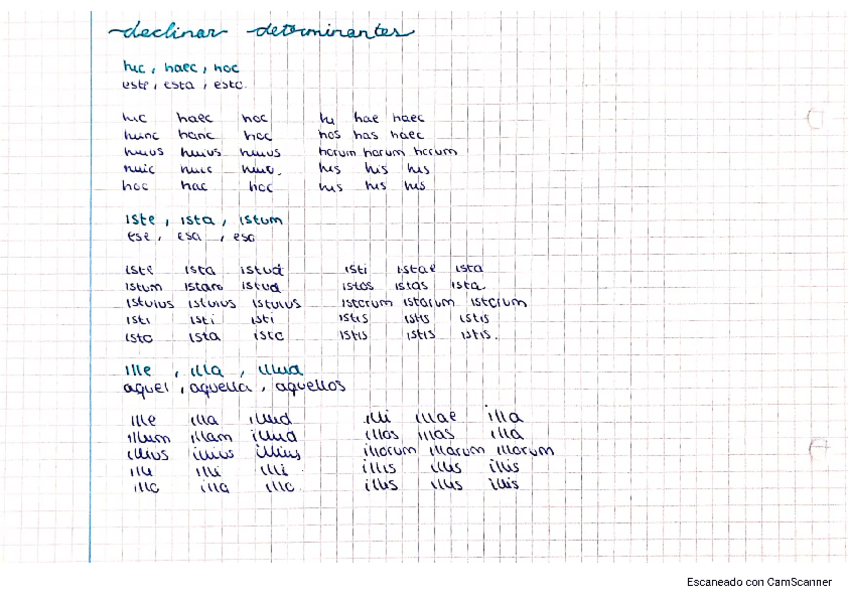 declinar determinantes
hic, haec, hoc
este, esta, esto.
hic haec hoc hi hae haec
hunc hanc hoc hos has haec
huius huius huius horum harum horum
huic huic huic. his his his
hoc hac hoc his his his
iste, ista, istum
ese, esa, eso
iste ista istud isti istae ista
istum istam istud istos istas ista.
istuius istuius istuius istorum istarum istorum
isti isti isti istis istis istis
isto ista isto istis istis istis.
ille, illa, illud
aquel, aquella, aquellos
ille illa illud illi illae illa
illum illam illud illos illas illa
illius illius illius illorum illarum illorum
illi illi illi illis illis illis
illo illa illo. illis illis illis
Escaneado con CamScanner